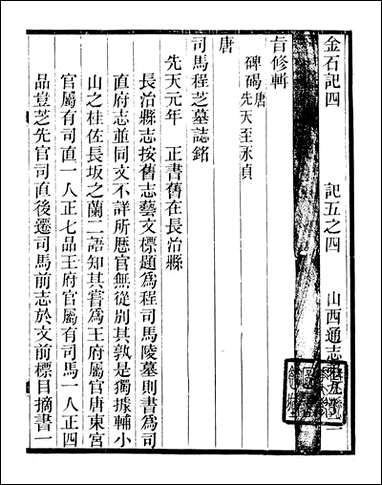 金石記四　記五之四　山西通志
旨修輯
碑碣唐先天至永貞
唐
司馬程芝墓誌銘
先天元年　正書舊在長治縣
長治縣志按舊志藝文標題為程司馬陵墓則書為司
直府志並同文不詳所歷官無從別其孰是獨據輔小
山之桂佐長坂之蘭二語知其嘗為王府屬官唐東宮
官屬有司直一人正七品王府官屬有司馬一人正四
品豈芝先官司直後遷司馬前志於文前標目摘書一